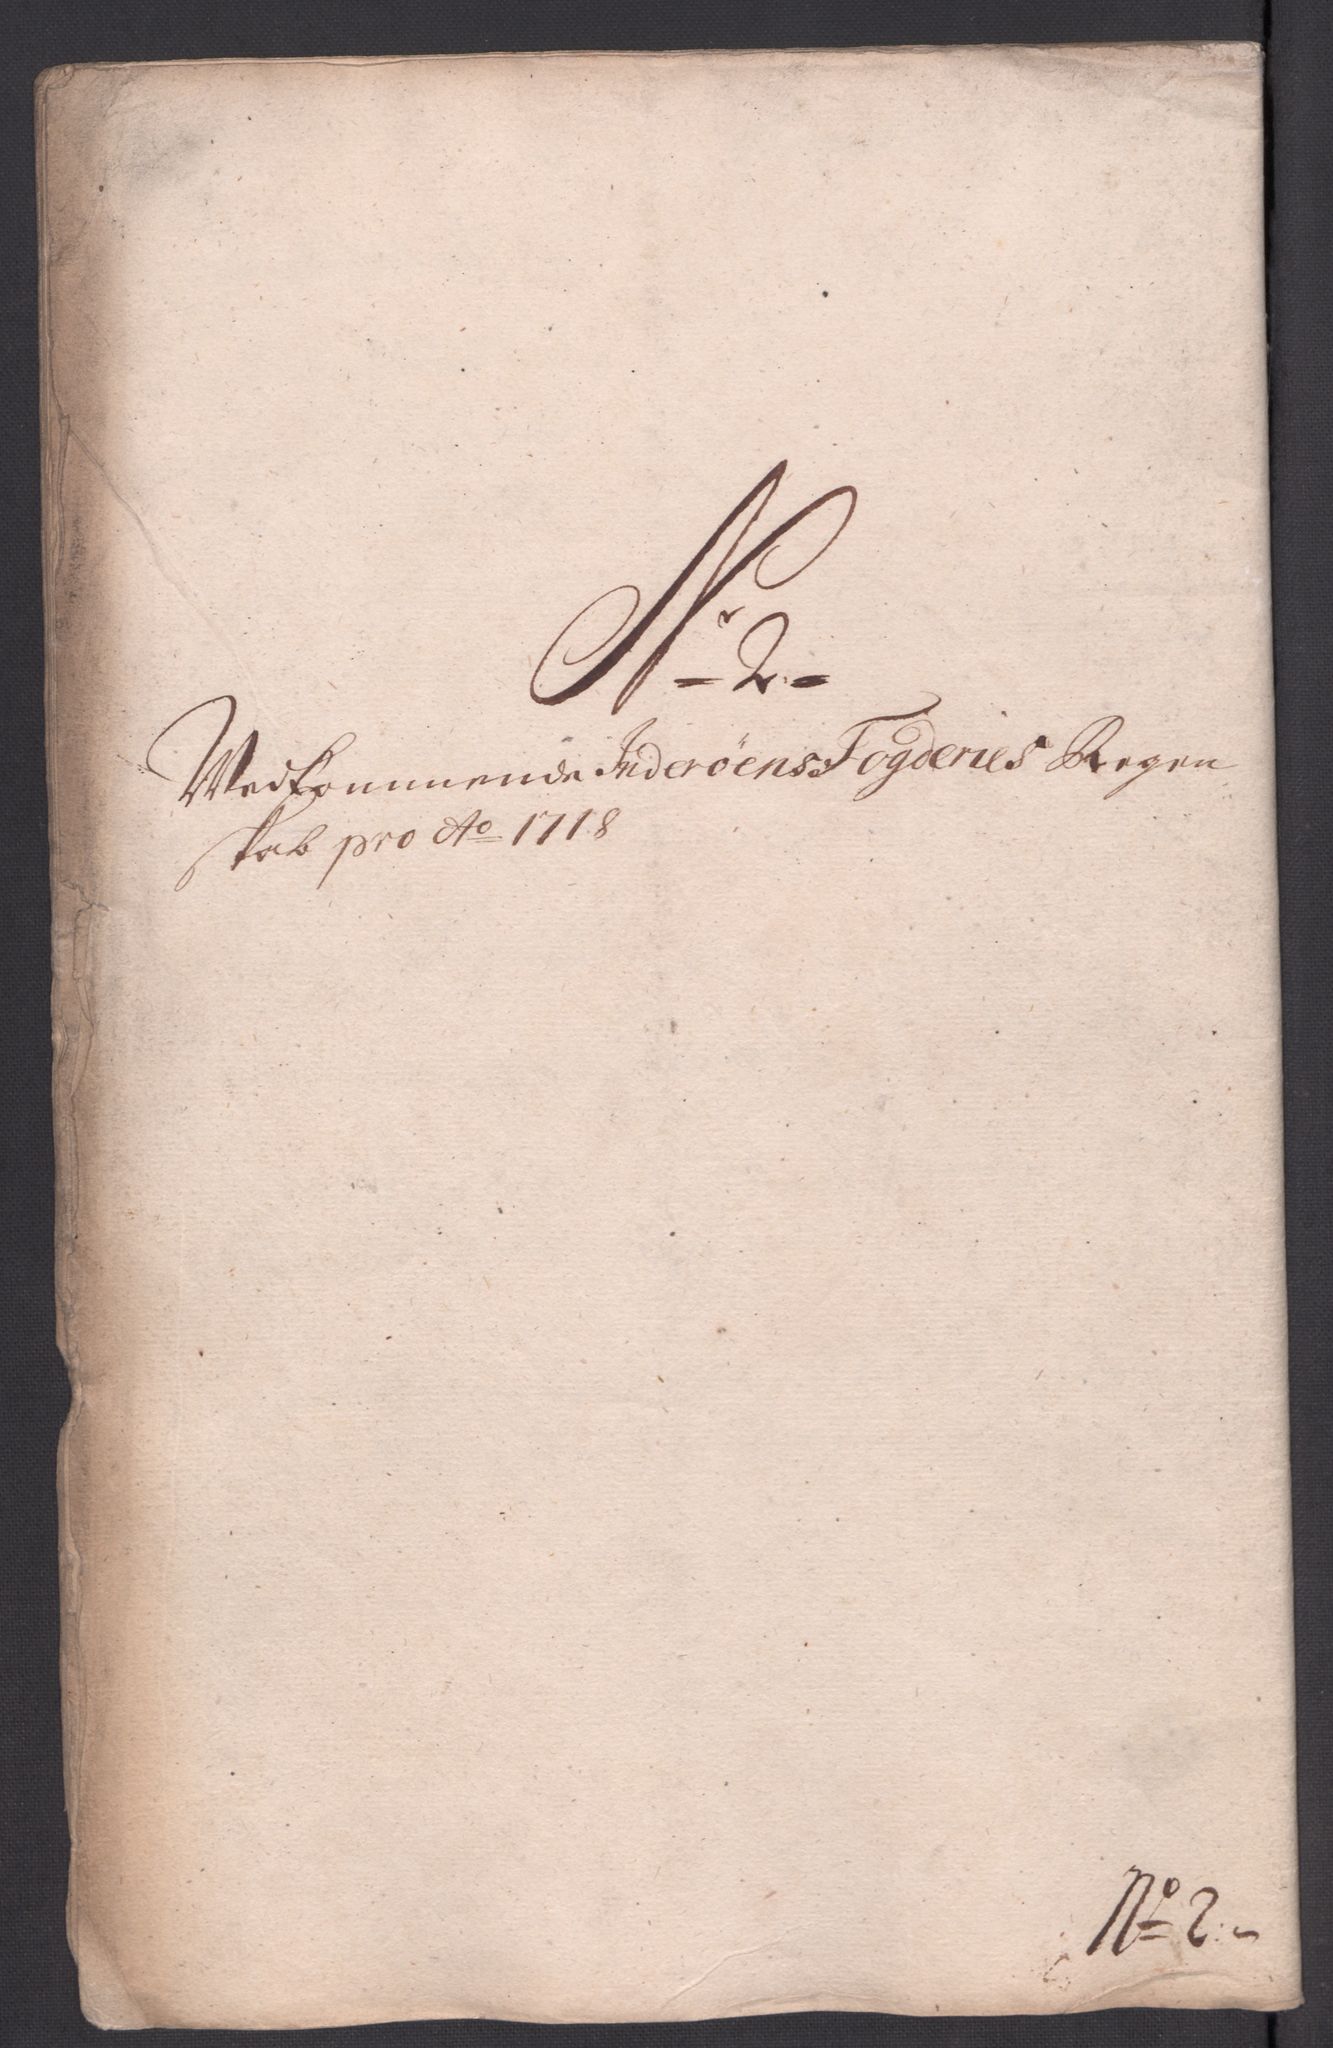 Nr 2.
Vedkommende Inderöens Fogderies Regen
skab pro Ao 1718
No 2.